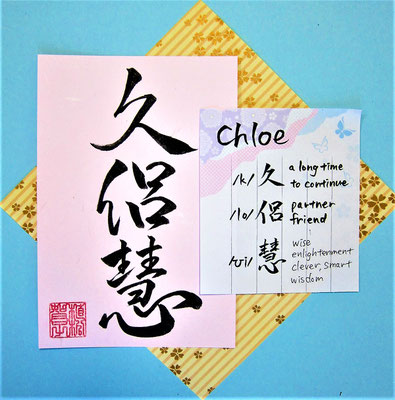 久
侶
慧
Chloe
/k/ 久 a long time
to continue
/lo/ 侶 partner
friend
/ʊi/ 慧 wise
enlightenment
clever, smart
wisdom